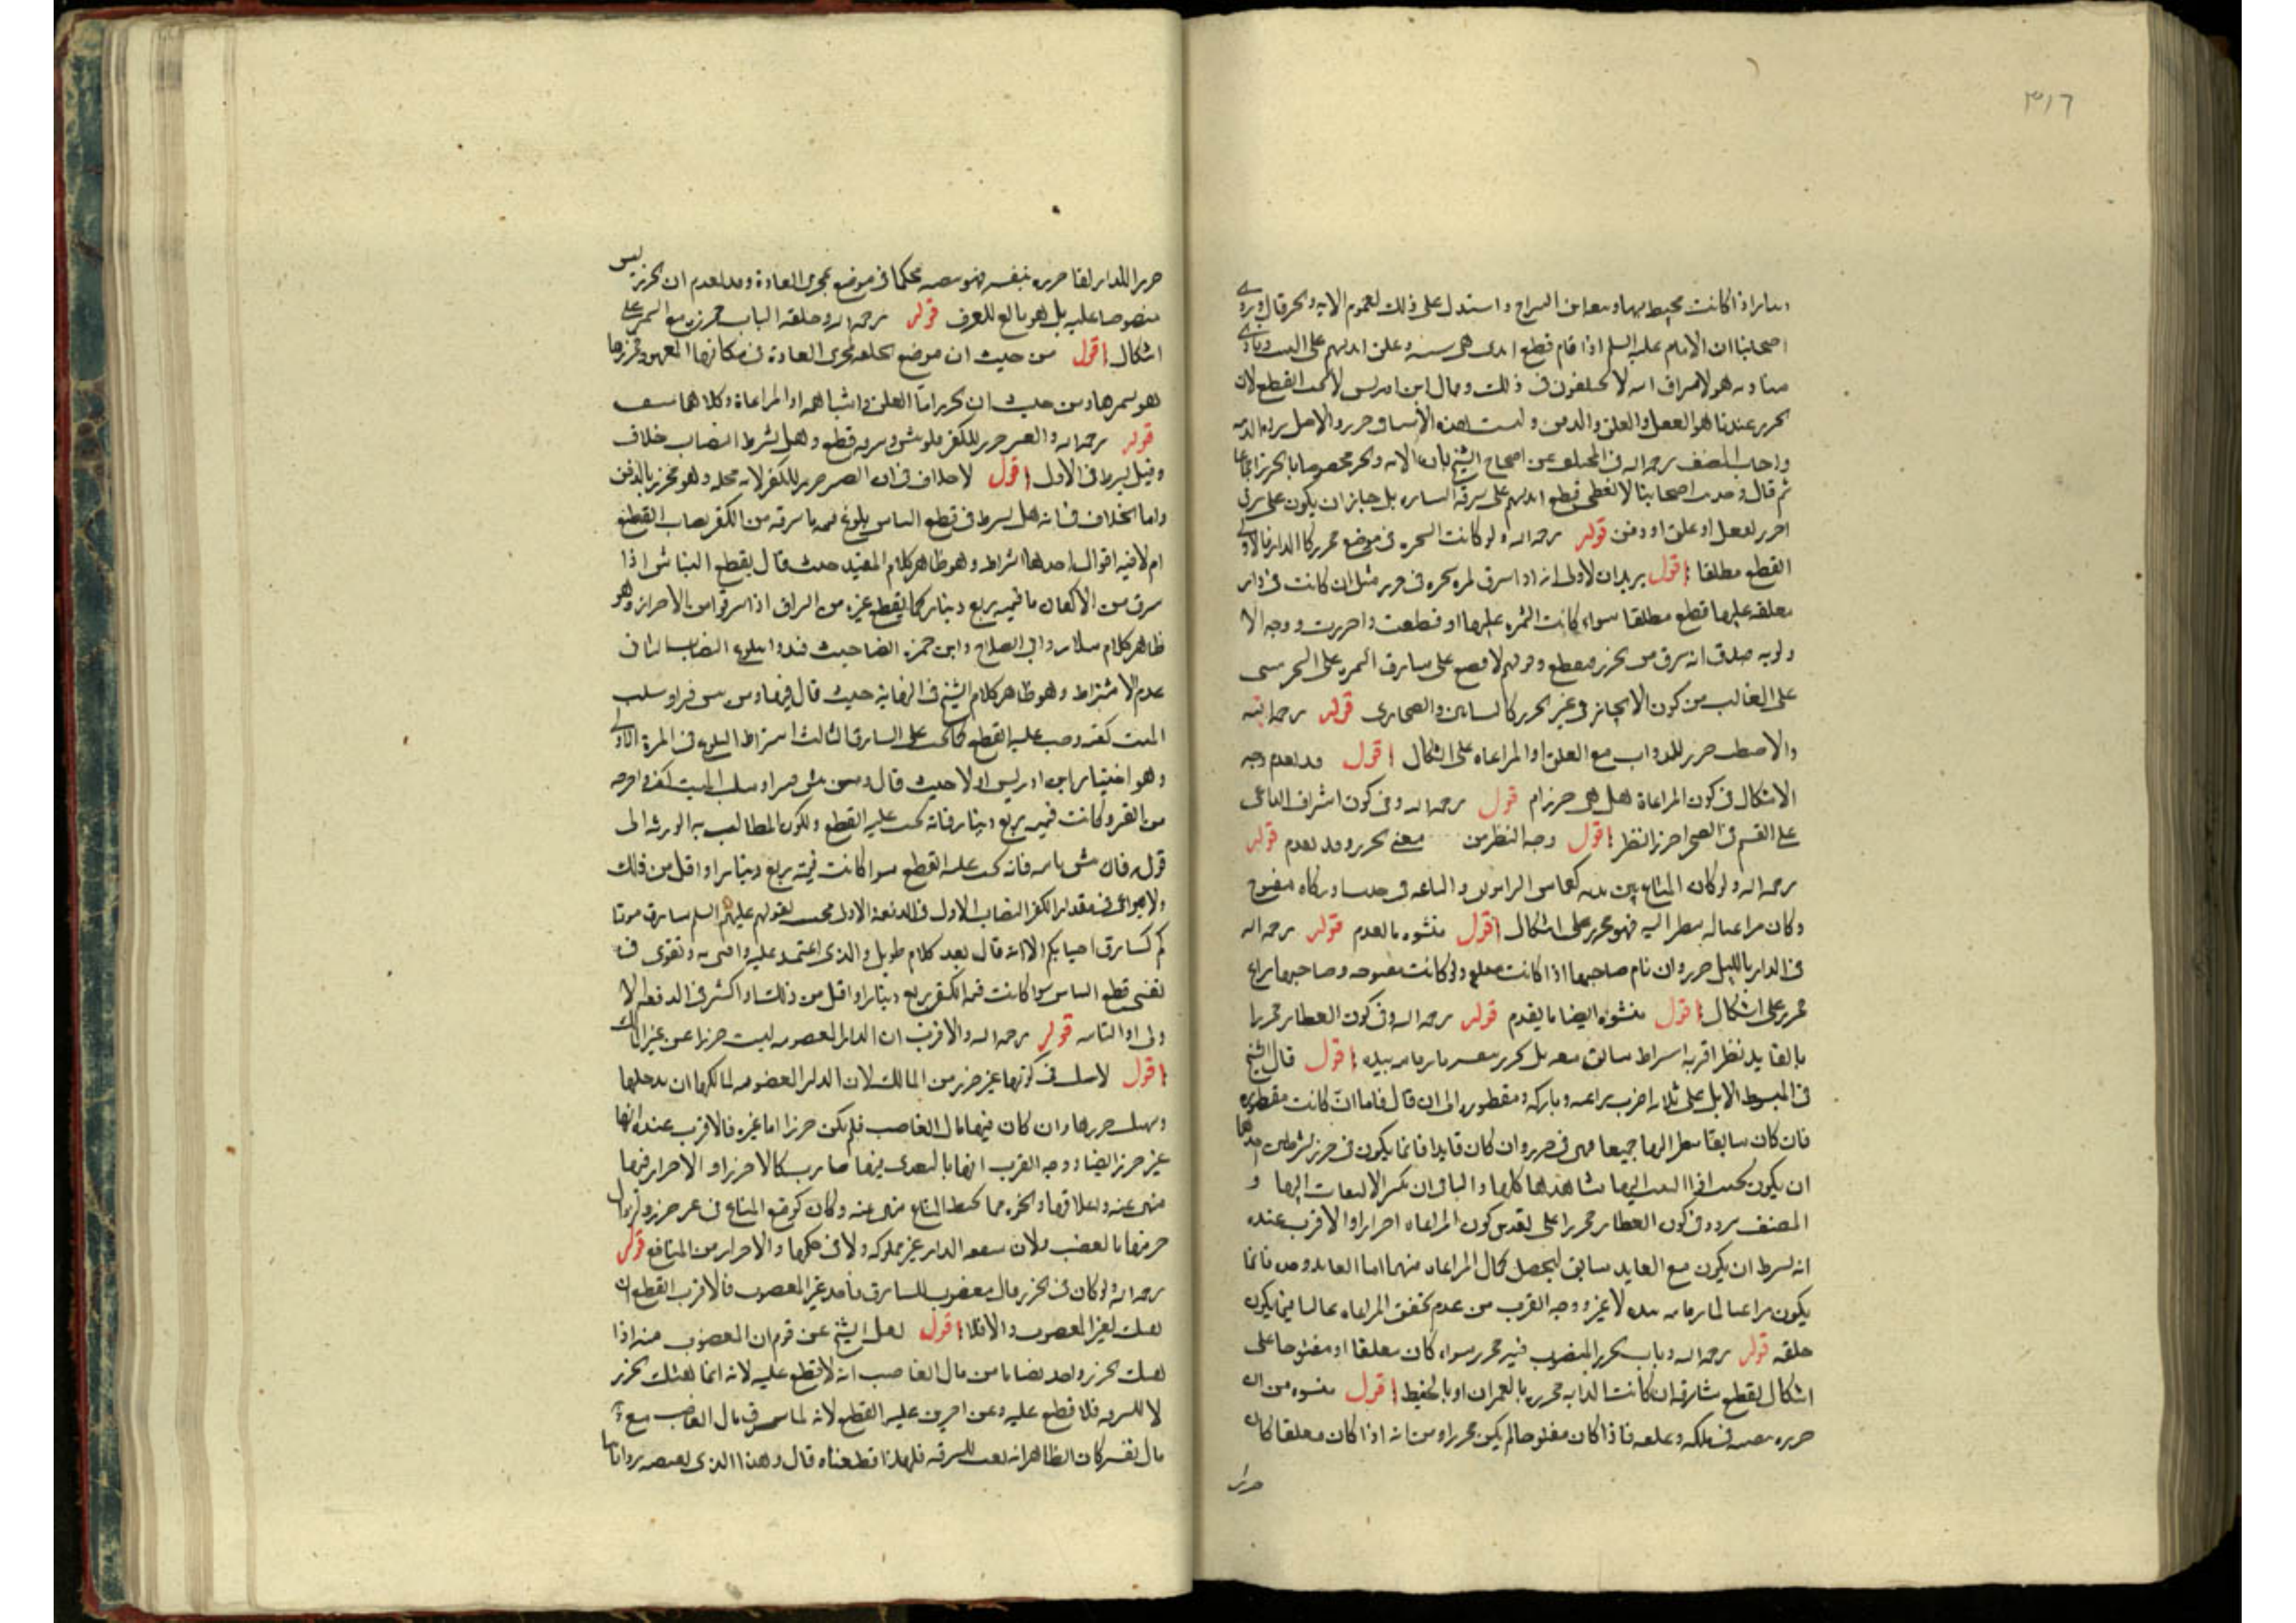 ٣١٦
اذا كانت محيط بها واستدل على ذلك لعموم الايه والخبر قال وروى
اصحابنا ان الامام عليه السلم اذا قام قطع ايدى بنى وعلق ايديهم على البيت ونادى
هولا سراق الله لا يختلفون فى ذلك وقال ابن ادريس لا يجب القطع لان
الحرز عندنا هو القفل والغلق والدفن وليست هذه الاشيا فى حرز والاصل براه الذمه
واجاب المصنف رحمه الله فى المختلف عن احتجاج الشيخ بان الايه والخبر مخصوصا بالحرز اجماعا
ثم قال وحديث اصحابنا لا يعطى قطع ايديهم على سرقه الستاره بل جاز ان يكون على سرقه
احرز بقفل او غلق او دفن قوله رحمه الله ولو كانت الشجره فى موضع محرز كالدار فالاولى
القطع مطلقا اقول يريد ان الاولى انه اذا سرق ثمره شجره فى حرز مثل ان كانت فى دار
مغلقه عليها قطع مطلقا سواء كانت الثمره عليها او قطعت واحرزت ووجه الا
ولويه صدق انه سرق من حرز فيقطع وقولهم لا قطع على سارق الثمره على الشجر مبنى
على الغالب من كون الاشجار فى غير الحرز كالبساتين والصحارى قوله رحمه الله
والاصطبل حرز للدواب مع الغلق او المراعاه على اشكال اقول قد تقدم وجه
الاشكال فى كون المراعاة هل هى حرز ام قول رحمه الله وفى كون اشراف الداعى
على الغنم فى الصحرا حرزا نظر اقول وجه النظر من معنى الحرز وقد تقدم قوله
رحمه الله ولو كان المتاع بين يديه والباعه فى دكان مفتوح
وكان مراعيا له ينظر اليه فهو محرز على اشكال اقول منشوه ما تقدم قوله رحمه الله
فى الدار بالليل حرز وان نام صاحبها اذا كانت مغلقه ولو كانت مفتوحه وصاحبها مراع
محرز على اشكال اقول منشوه ايضا ما تقدم قوله رحمه الله وفى كون القطار محرزا
بالقايد نظر اقربه اشتراط سائق معه بل يحرز بقيده ما زمامه بيده اقول قال الشيخ
فى المبسوط الابل على ثلاثه اضرب راعيه وباركه ومقطوره الى ان قال فاما ان كانت مقطوره
فان كان سايقا ينظر اليها جميعا فهى فى حرز وان كان قايدا فانما يكون فى حرز بشرطين احدهما
ان يكون بحيث اذا التفت اليها شاهدها كلها والثانى ان يكثر الالتفات اليها و
المصنف تردد فى كون القطار محرزا على تقدير كون المراعاه احرازا والاقرب عنده
انه يشترط ان يكون مع القايد سايق ليحصل كمال المراعاه منهما اما القايد وحده فانما
يكون مراعيا لما زمامه بيده لا غير ووجه القرب من عدم تحقق المراعاه غالبا فيما يكون
خلفه قوله رحمه الله وباب الحرز المنصوب فيه محرز سواء كان مغلقا او مفتوحا على
اشكال يقطع سارقه ان كانت الدابه محرزه بالعمران او بالحفظ اقول منشوه من ان
حرزه نصبه فى ملكه وغلقه فاذا كان مفتوحا لم يكن محرزا ومن انه اذا كان مغلقا كان
حرزا
حرزا للدار لقا حرزه بنفسه فهو نصبه محكما فى موضع بمجرى العادة وقد تقدم ان الحرز ليس
منصوصا عليه بل هو تابع للعرف قوله رحمه الله وحلقه الباب محرزه مع السمر على
اشكال اقول من حيث ان موضع الحلقه بمجرى العادة فى مكانها المعهود فحرزها
هو سمرها ومن حيث ان الحرز اما الغلق واشباهه او المراعاة وكلاهما منتف
قوله رحمه الله والقبر حرز للكفن فلو نبش وسرقه قطع وهل يشترط النصاب خلاف
وقيل يشترط فى الاول اقول لا خلاف فى ان القبر حرز للكفن لانه محله وهو محرز بالدفن
واما الخلاف فى انه هل يشترط فى قطع النباش بلوغ قيمه ما سرقه من الكفن نصاب القطع
ام لا فيه اقوال احدها اشتراطه وهو ظاهر كلام المفيد حيث قال يقطع النباش اذا
سرق من الاكفان ما قيمته ربع دينار كما يقطع غيره من السراق اذا سرقوا من الاحراز وهو
ظاهر كلام سلار وابى الصلاح وابن حمزه ايضا حيث قيدوا ببلوغ النصاب الثانى
عدم الاشتراط وهو ظاهر كلام الشيخ فى النهاية حيث قال فيها ومن نبش قبرا وسلب
الميت كفنه وجب عليه القطع كما يجب على السارق الثالث اشتراط البلوغ فى المرة الاولى
وهو اختيار ابن ادريس اولا حيث قال ومن نبش قبرا وسلب الميت كفنه واخرجه
من القبر وكانت قيمه ربع دينار فانه يجب عليه القطع ويكون المطالب به الورثه الى
قوله فان نبش ثانيه فانه يجب عليه القطع سوا كانت قيمته ربع دينار او اقل من ذلك
ولا يراعى فى مقدار الكفن النصاب الاول فى الدفعه الاولى فحسب لقولهم عليهم السلم سارق موتا
كم كسارق احيايكم الا انه قال بعد كلام طويل والذى اعتمد عليه وافتى به وتقوى فى
نفسى قطع النباش سوا كانت قيمه الكفن ربع دينار او اقل من ذلك او اكثر فى الدفعه الا
ولى او الثانيه قوله رحمه الله والاقرب ان الدار المغصوبه ليست حرزا عن غير المالك
اقول لا شك فى كونها غير حرز من المالك لان الدار المغصوبه لمالكها ان يدخلها
ويهتك حرزها وان كان فيها مال الغاصب فلم يكن حرزا اما غيره فالاقرب عنده انها
غير حرز ايضا ووجه القرب انها بالتعدى فيها صارت كالا حرز او الاحراز فيها
منهى عنه واغلاقها وغيره مما يحفظ المتاع منهى عنه وكان كوضع المتاع فى غير حرز ولزوال
حرزها بالغصب ولان منفعه الدار غير مملوكه ولا فى حكمها والاحراز من المنافع قوله
رحمه الله ولو كان فى الحرز مال مغصوب للسارق فاخذ غير المغصوب فالاقرب القطع ان
هتك لغير المغصوب والا فلا اقول نقل الشيخ عن قوم ان المغصوب منه اذا
هتك الحرز واخذ نصابا من مال الغاصب انه لا قطع عليه لانه انما هتك الحرز
لا للسرقه فلا قطع عليه وعن اخرين عليه القطع لانه لما سرق مال الغاصب مع
مال نفسه كان الظاهر انه هتك للسرقه فلهذا قطعناه قال وهذا الذى تقتضيه رواياتنا